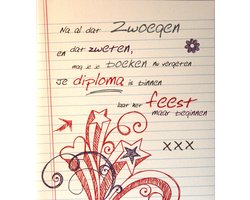 Na al dat Zwoegen
en dat zweten,
mag je je boeken nu vergeten
Je diploma is binnen
laat het feest
maar beginnen
xxx